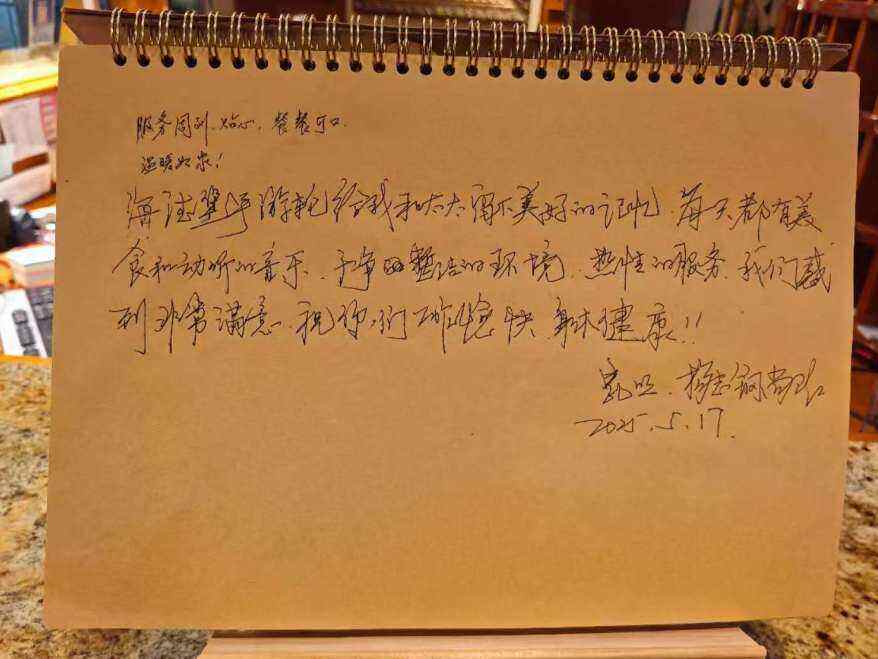 服务周到、贴心，餐餐可口
温暖如家！
游轮给我和太太留下美好的记忆，每天都有美
食和动听的音乐、干净的整洁的环境、热性的服务，我们感
到非常满意，祝你们工作愉快，身体健康！！
昆明、杨
2025.5.17.